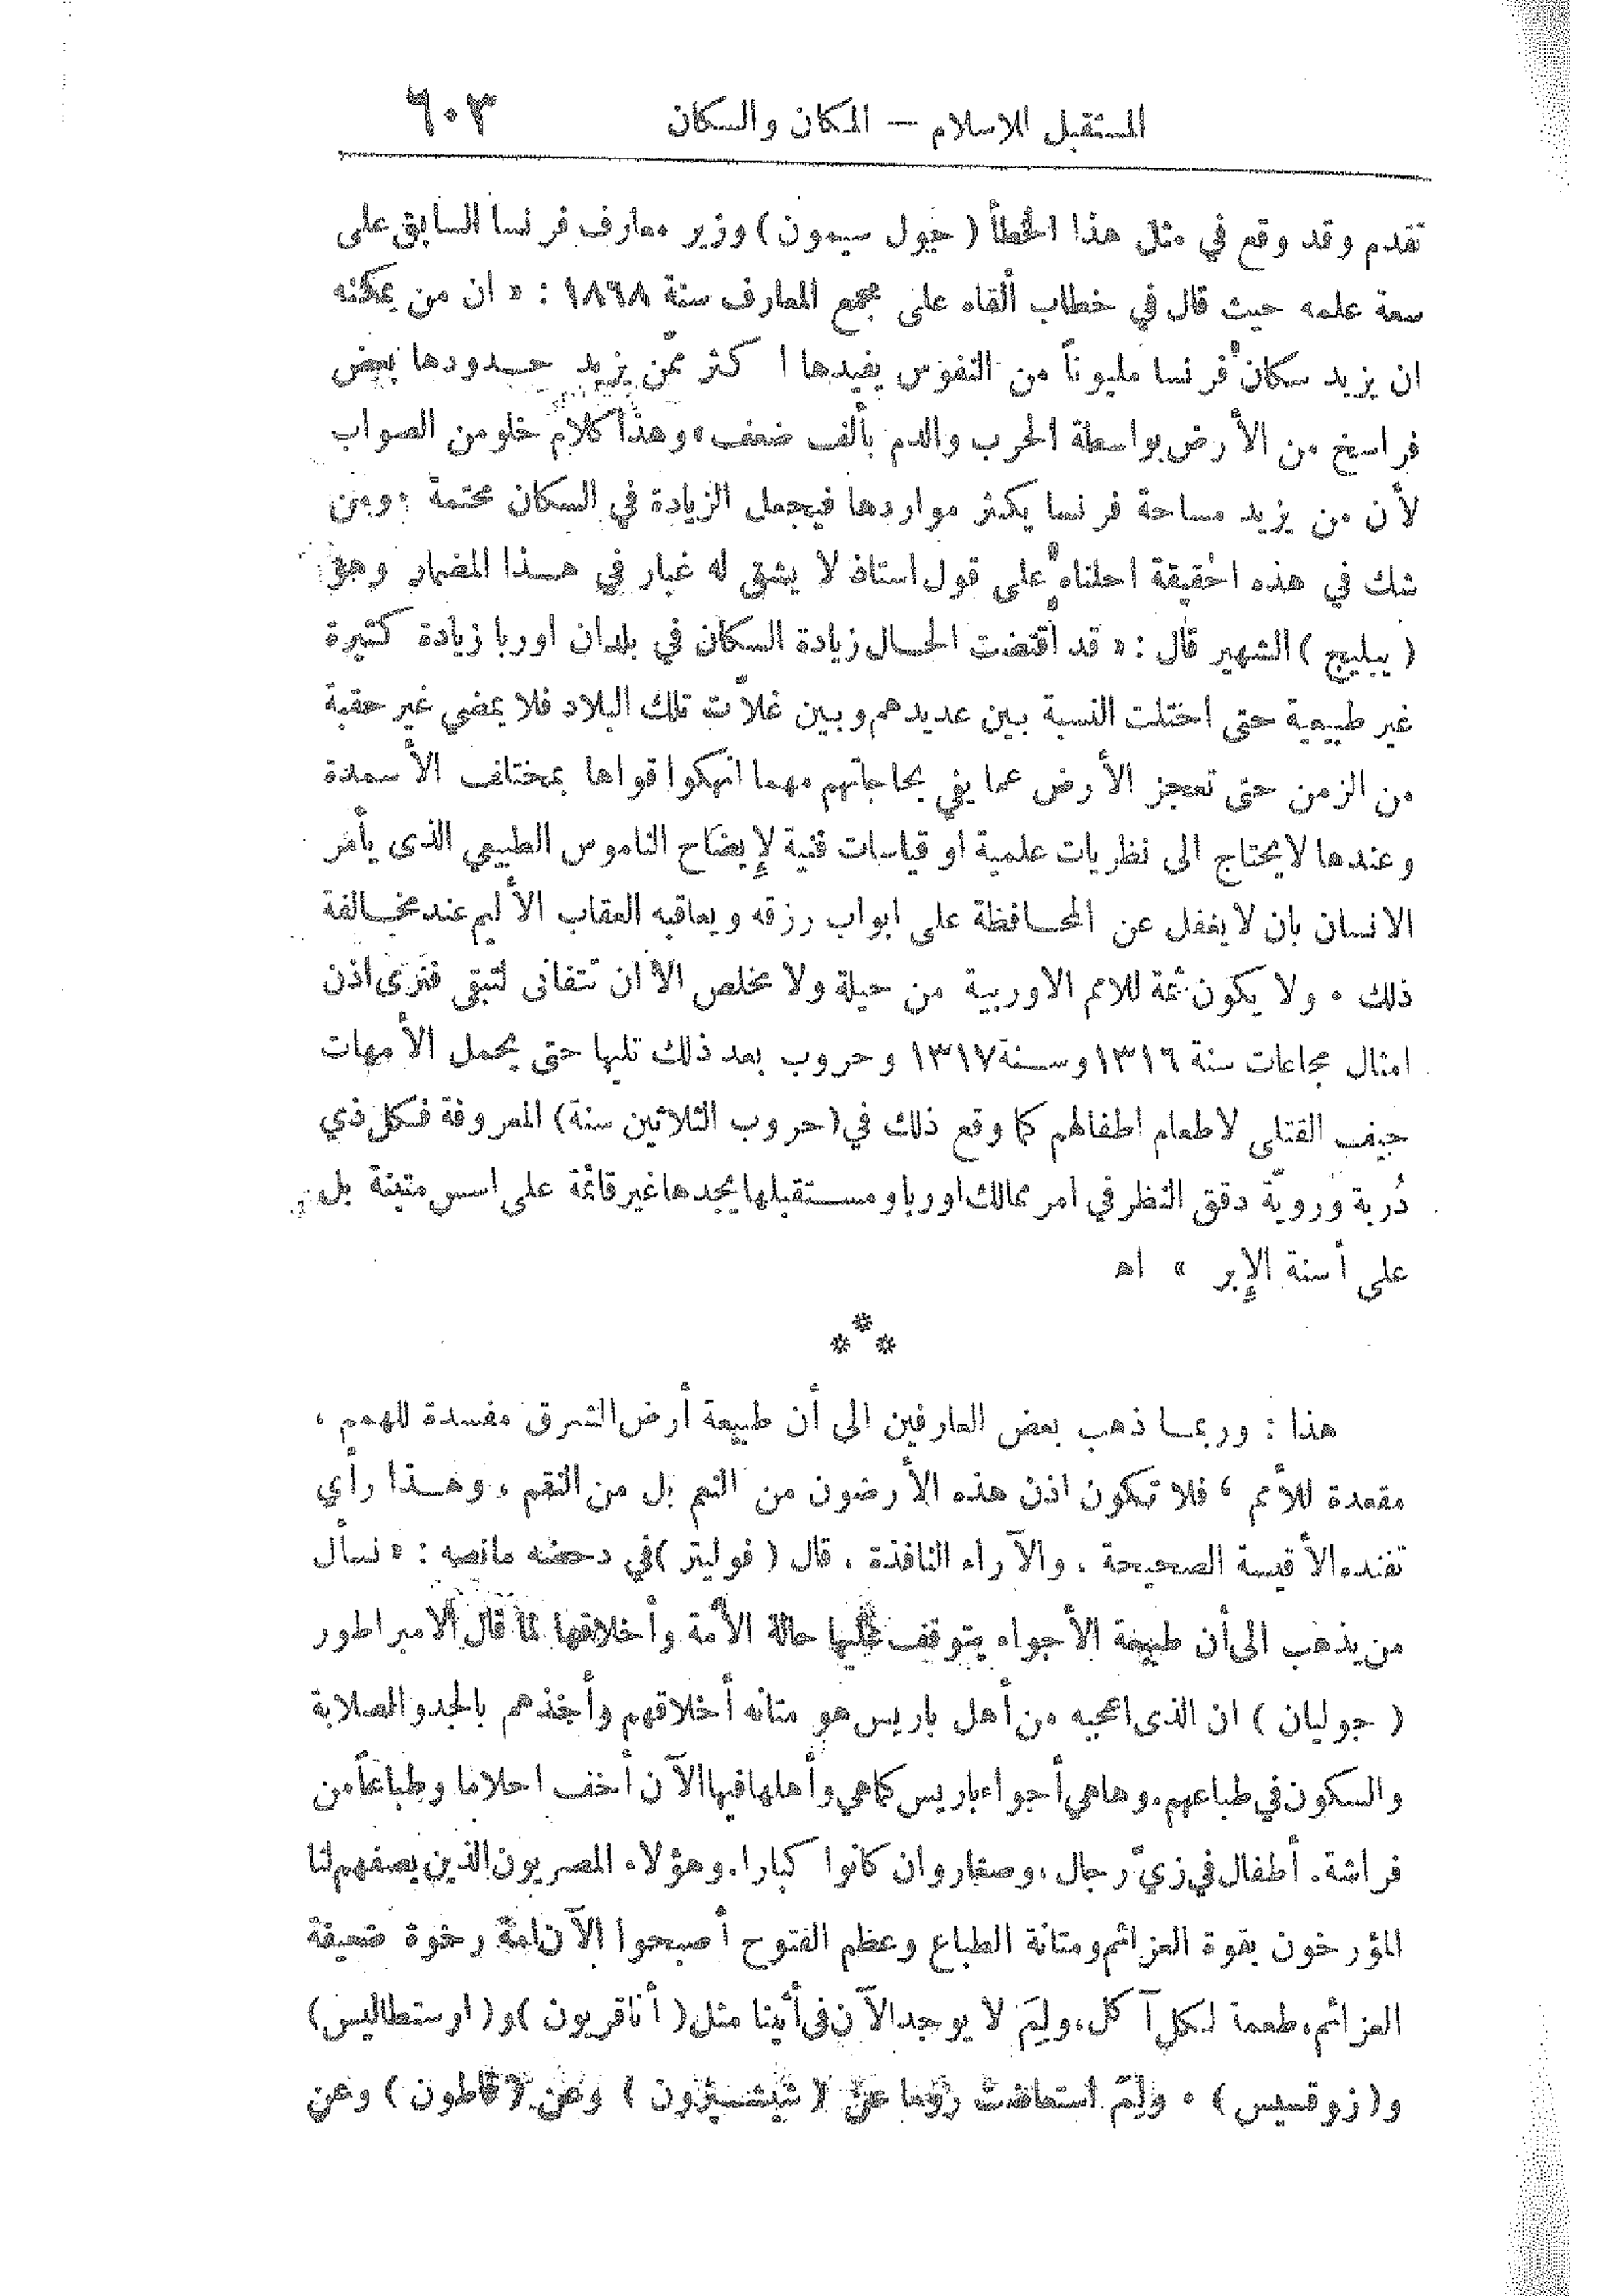 المستقبل للاسلام — المكان والسكان ٦٠٣
تقدم وقد وقع في مثل هذا الخطأ ( جول سيمون ) وزير معارف فرنسا السابق على
سعة علمه حيث قال في خطاب ألقاه على مجمع المعارف سنة ١٨٦٨ : « ان من يمكنه
ان يزيد سكان فرنسا مليوناً من النفوس يفيدها اكثر ممّن يزيد حدودها بعض
فراسخ من الأرض بواسطة الحرب والدم بألف ضعف » وهذا كلام خلو من الصواب
لأن من يزيد مساحة فرنسا يكثر مواردها فيجعل الزيادة في السكان محتمة ، ومن
شك في هذه الحقيقة احلناه على قول استاذ لا يشق له غبار في هذا المضمار وهو
( يبليج ) الشهير قال : « قد أقتضت الحال زيادة السكان في بلدان اوربا زيادة كثيرة
غير طبيعية حتى اختلت النسبة بين عديدهم وبين غلاّت تلك البلاد فلا يمضي غير حقبة
من الزمن حتى تعجز الأرض عما يفي بحاجاتهم مهما انهكوا قواها بمختلف الأسمدة
وعندها لا يحتاج الى نظريات علمية او قياسات فنية لإيضاح الناموس الطبيعي الذى يأمر
الانسان بان لا يغفل عن المحافظة على ابواب رزقه ويعاقبه العقاب الأليم عند مخالفة
ذلك . ولا يكون ثمة للامم الاوربية من حيلة ولا مخلص الاّ ان تتفانى لتبقى فترى اذن
امثال مجاعات سنة ١٣١٦ وسنة ١٣١٧ وحروب بعد ذلك تليها حتى يحمل الأمهات
جيف القتلى لاطعام اطفالهم كما وقع ذلك في ( حروب الثلاثين سنة ) المعروفة فكل ذي
دُربة وروية دقق النظر في امر ممالك اوربا ومستقبلها يجدها غير قائمة على اسس متينة بل
على أسنة الإبر » اه
***
هذا : وربما ذهب بعض العارفين الى أن طبيعة أرض الشرق مفسدة للهمم ،
مقعدة للأمم ، فلا تكون اذن هذه الأرضون من النعم بل من النقم ، وهذا رأي
تفنده الأقيسة الصحيحة ، والآراء النافذة ، قال ( فوليتر ) في دحضه مانصه : « نسأل
من يذهب الى أن طبيعة الأجواء يتوقف عليها حالة الأمة وأخلاقها لما قال الامبراطور
( جوليان ) ان الذى اعجبه من أهل باريس هو متانه أخلاقهم وأخذهم بالجد والصلابة
والسكون في طباعهم . وها هي أجواء باريس كما هي وأهلها فيها الآن أخف احلاما وطباعاً من
فراشة . أطفال في زيّ رجال ، وصغار وان كانوا كبارا . وهؤلاء المصريون الذين يصفهم لنا
المؤرخون بقوة العزائم ومتانة الطباع وعظم الفتوح أصبحوا الآن امة رخوة ضعيفة
العزائم ، طعمة لكل آكل ، ولِمَ لا يوجد الآن في أثينا مثل ( أناقريون ) و ( اوستطاليس )
و ( زوقسيس ) . ولِمَ استعاضت روما عن ( شيشرون ) وعن ( قاطون ) وعن